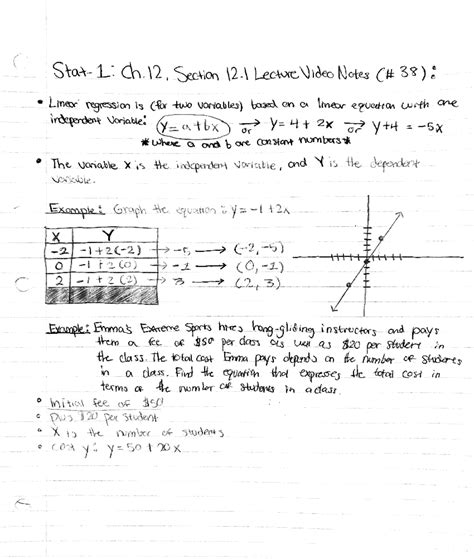 Stat-1: Ch.12, Section 12.1 Lecture Video Notes (#38):
• Linear regression is (for two variables) based on a linear equation with one
independent variable: y=a+bx → or y=4+2x → or y+4=-5x
*where a and b are constant numbers*
• The variable X is the independent variable, and Y is the dependent
variable.
Example: Graph the equation: y=-1+2x
X Y
-2 -1+2(-2) → -5 → (-2,-5)
0 -1+2(0) → -1 → (0,-1)
2 -1+2(2) → 3 → (2,3)
Example: Emma's Extreme Sports hires hang-gliding instructors and pays
them a fee of $50 per class as well as $20 per student in
the class. The total cost Emma pays depends on the number of students
in a class. Find the equation that expresses the total cost in
terms of the number of students in a class.
• Initial fee of $50
• Plus $20 per student
• X is the number of students
• cost y: y=50+20x